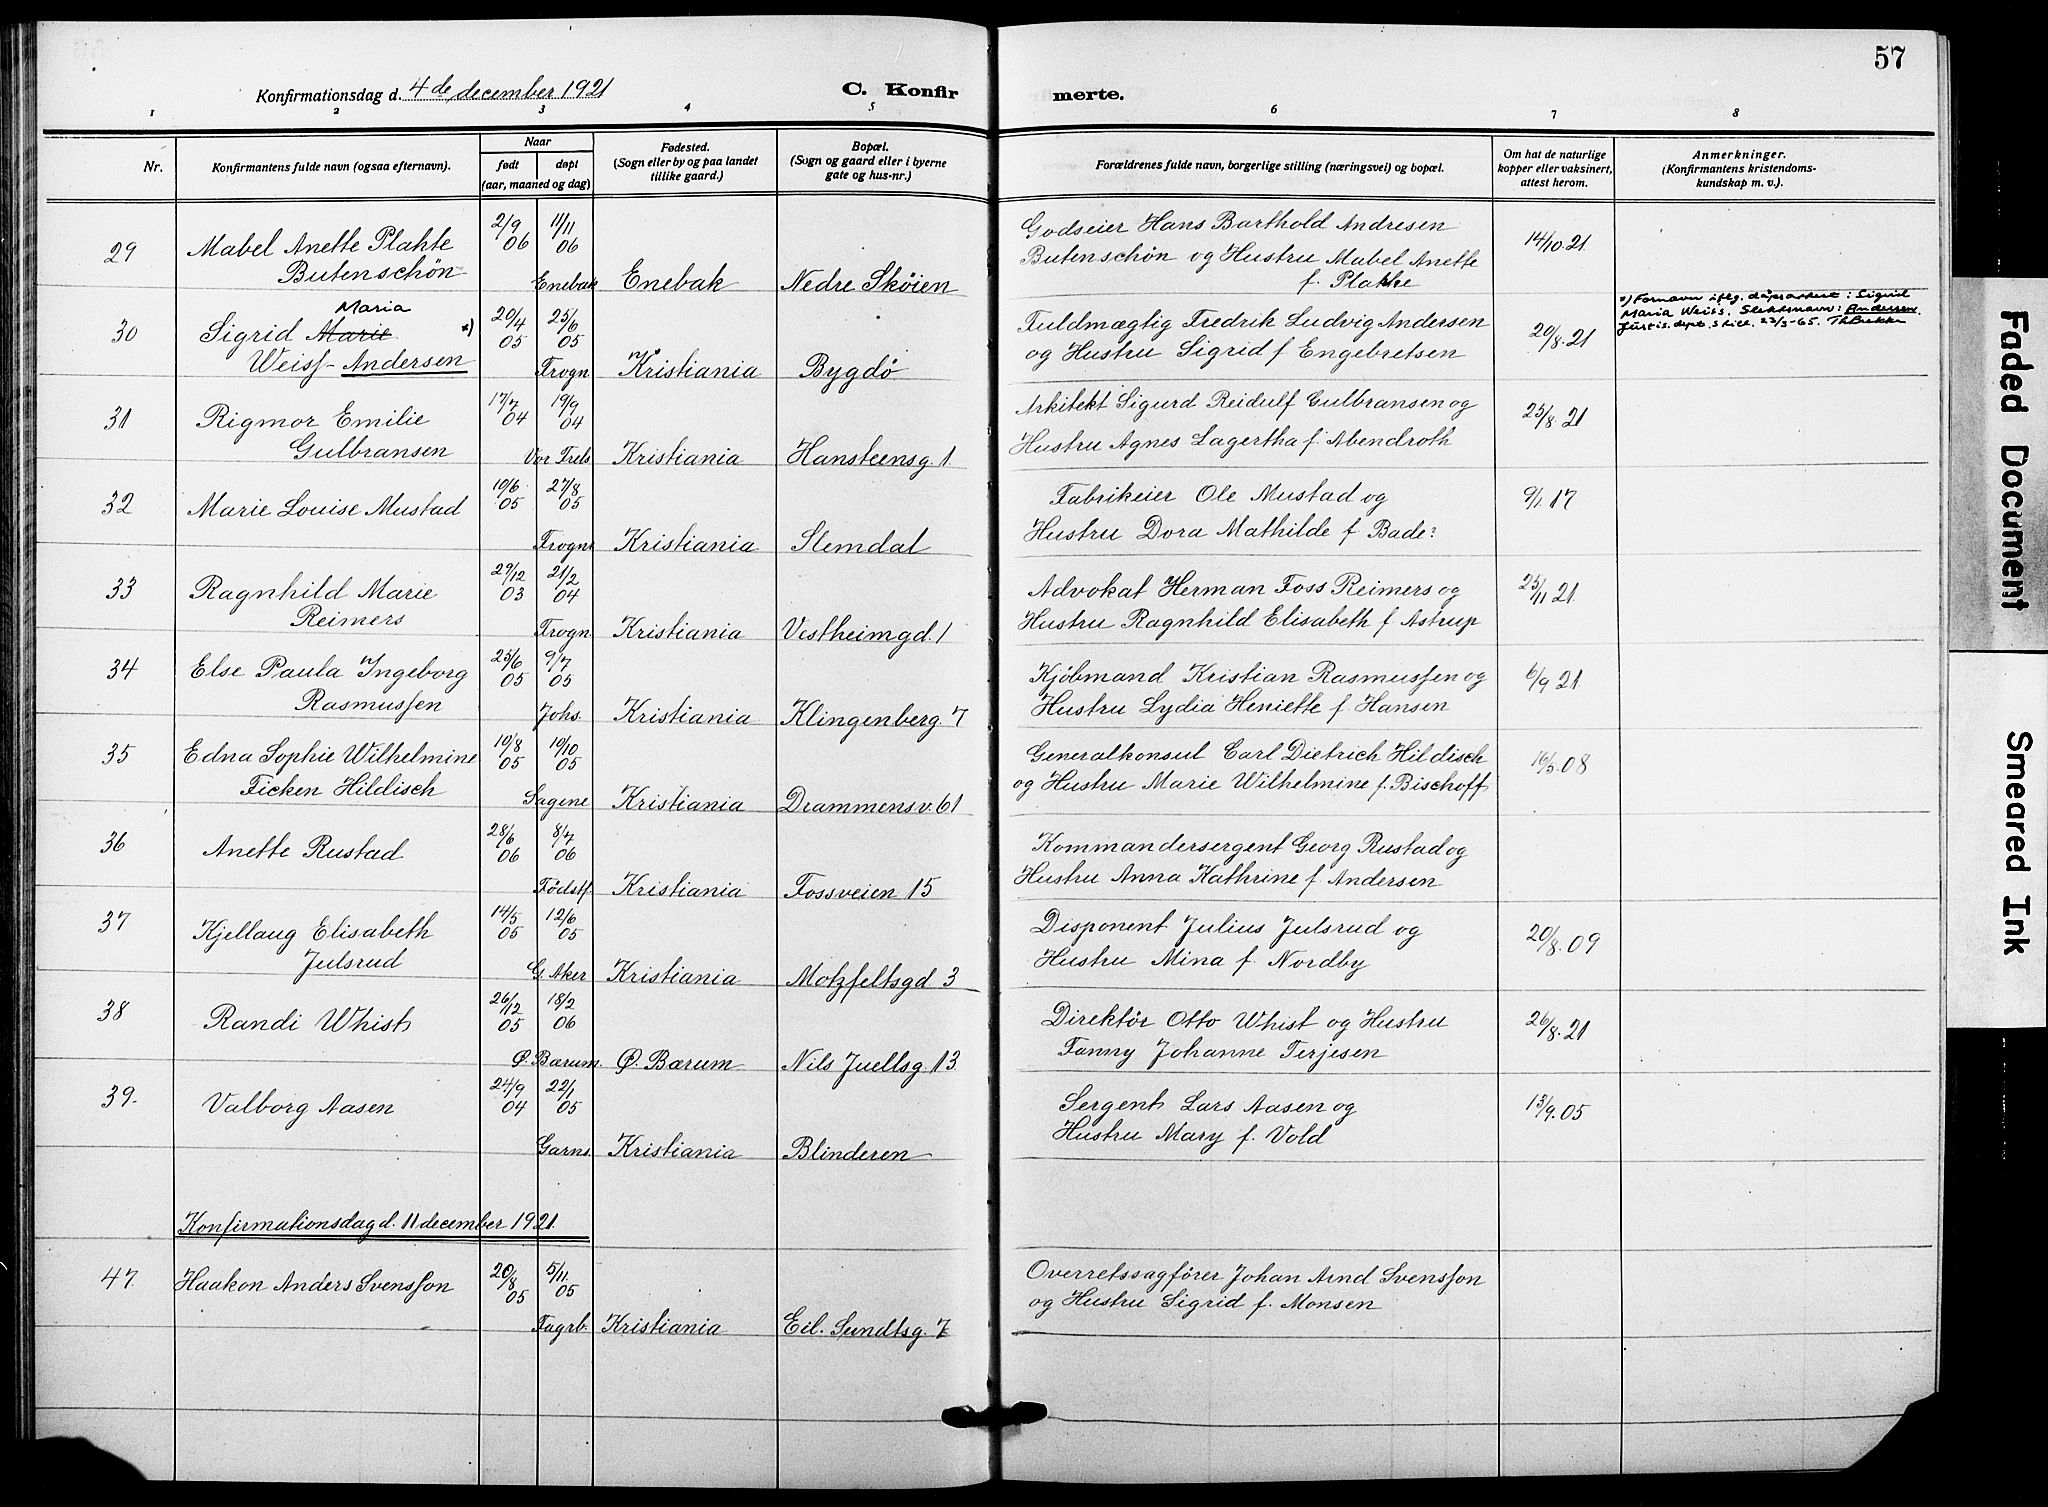 57
Konfirmationsdag d. 4de december 1921
C. Konfir merte.
1 2 3 4 5 6 7 8
Nr.
Konfirmantens fulde navn (ogsaa efternavn).
Naar
født døpt
(aar, maaned og dag)
Fødested.
(Sogn eller by og paa landet
tillike gaard.)
Bopæl.
(Sogn og gaard eller i byerne
gate og hus-nr.)
Forældrenes fulde navn, borgerlige stilling (næringsvei) og bopæl.
Om hat de naturlige
kopper eller vaksinert,
attest herom.
Anmerkninger.
(Konfirmantens kristendoms-
kundskap m. v.).
29 Mabel Anette Plahte 2/9 06 11/11 06 Godseier Hans Barthold Andresen 14/10.21
Butenschön Enebak Enebak Nedre Skøien Butenschön og Hustru Mabel Anette
f. Plahte
Maria
30 Sigrid Marie *) 20/4 05 25/6 05 Fuldmægtig Fredrik Ludvig Andersen 20/8.21
Weiss- Andersen Frogn. Kristiania Bygdø og Hustru Sigrid f. Engebretsen
*) Fornavn iflg. dåpsattest: Sigrid
Maria Weiss. Slektsnavn: Andersen.
Justis.dept. skill. 22/3-65. ThBrekke
31 Rigmor Emilie 17/7 04 19/9 04 Arkitekt Sigurd Reidulf Gulbransen og 25/8.21
Gulbransen Vor Frels Kristiania Hansteensg. 1 Hustru Agnes Lagertha f. Abendroth
32 Marie Louise Mustad 10/6 05 27/8 05 Fabrikeier Ole Mustad og 9/1.17
Frogn. Kristiania Slemdal Hustru Dora Mathilde f Bade:
33 Ragnhild Marie 29/12 03 21/2 04 Advokat Herman Foss Reimers og 25/11 21
Reimers Frogn. Kristiania Vestheimgd. 1 Hustru Ragnhild Elisabeth f. Astrup
34 Else Paula Ingeborg 25/6 05 9/7 05 Kjøbmand Kristian Rasmussen og 6/9 21
Rasmussen Johs. Kristiania Klingenberg. 7 Hustru Lydia Heniette f. Hansen
35 Edna Sophie Wilhelmine 10/8 05 19/10 05 Generalkonsul Carl Dietrich Hildisch 16/5.08
Ficken Hildisch Sagene Kristiania Drammensv. 61 og Hustru Marie Wilhelmine f. Bischoff
36 Anette Rustad 28/6 06 8/7 06 Kommandersergent Georg Rustad og
Fødstf. Kristiania Fossveien 15 Hustru Anna Kathrine f. Andersen
37 Kjellaug Elisabeth 14/5 05 12/6 05 Disponent Julius Julsrud og 20/8.09
Julsrud G. Aker Kristiania Motzfeltsgd 3 Hustru Mina f. Nordby
38 Randi Whist 26/12 05 18/2 06 Direktør Otto Whist og Hustru 26/8.21
Ø. Bærum. Ø. Bærum Nils Juellsg. 13 Fanny Johanne Terjesen
39. Valborg Aasen 24/9 04 22/1 05 Sergent Lars Aasen og 13/9.05
Garns. Kristiania Blinderen Hustru Mary f. Vold
Konfirmationsdag d. 11 december 1921.
47 Haakon Anders Svensson 20/8 05 5/11 05 Overretssagfører Johan Arnd Svensson
Fagrb. Kristiania Eil. Sundtsg. 7 og Hustru Sigrid f. Monsen
Faded Document
Smeared Ink